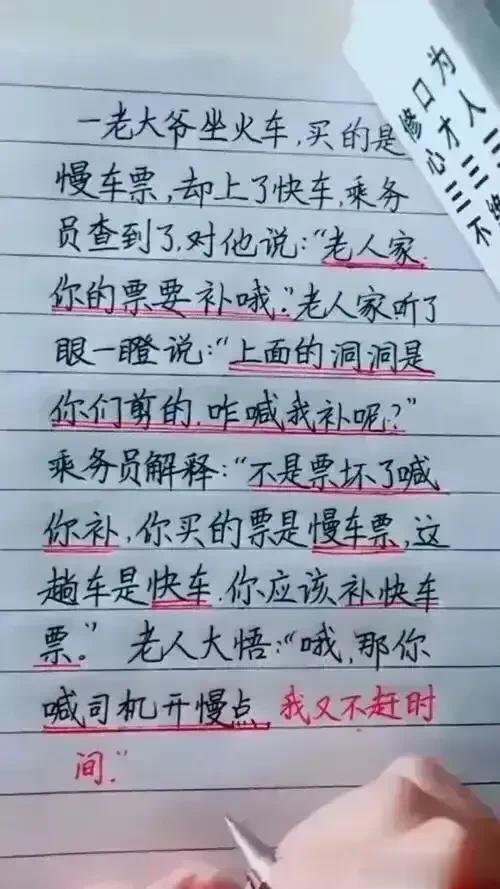 一老大爷坐火车,买的是
慢车票,却上了快车,乘务
员查到了,对他说:“老人家,
你的票要补哦。”老人家听了
眼一瞪说:“上面的洞洞是
你们剪的,咋喊我补呢?”
乘务员解释:“不是票坏了喊
你补,你买的票是慢车票,这
趟车是快车,你应该补快车
票。” 老人大悟:“哦,那你
喊司机开慢点,我又不赶时
间.”
为人三
口才三
修心三不